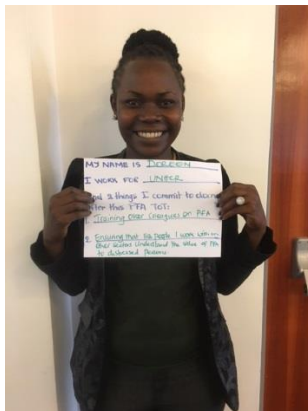 MY NAME IS DOREEN
I WORK FOR UNHCR
and 2 things I commit to doing
after this PFA TOT:
1. Training other Caregivers on PFA
2. Ensuring that the people I work with in
other sectors Understand the Value of PFA
to distressed persons.